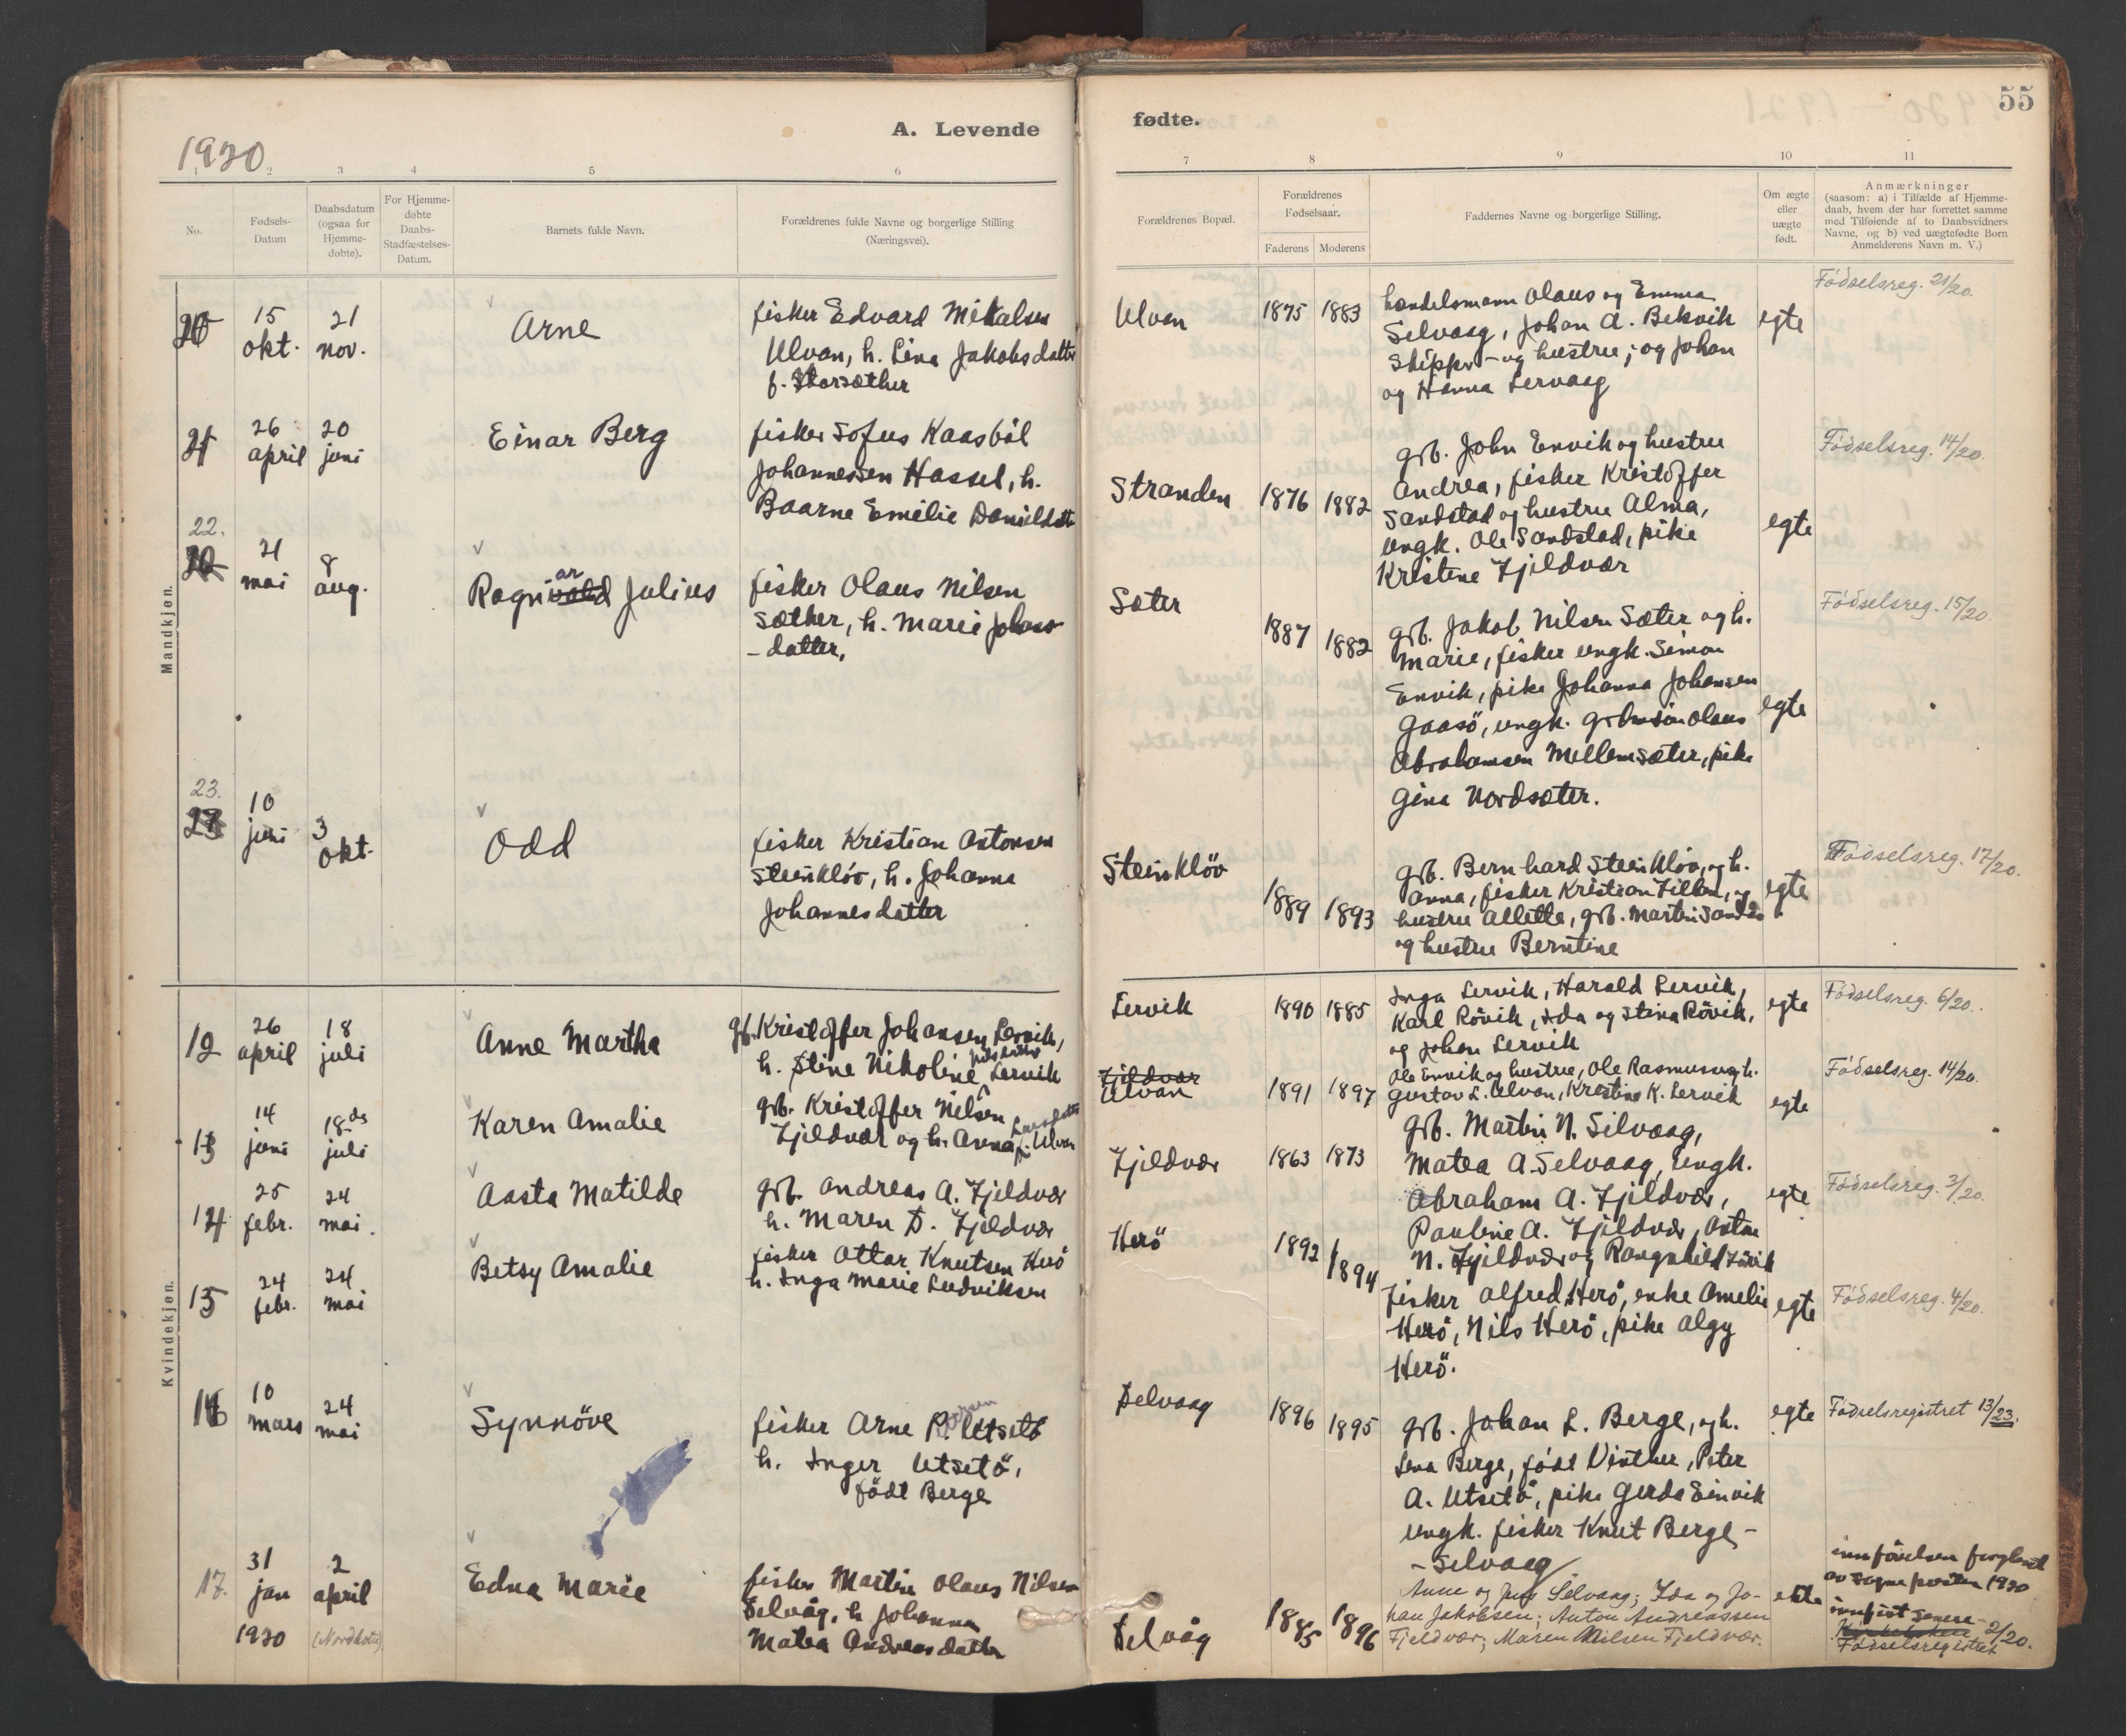 55
A. Levende
fødte.
1920
1 2 3 4 5 6
7 8 9 10 11
No.
Fødsels-
Datum
Daabsdatum
(ogsaa for
Hjemme-
døbte).
For Hjemme-
døbte
Daabs-
Stadfæstelses-
Datum.
Barnets fulde Navn.
Forældrenes fulde Navne og borgerlige Stilling
(Næringsvei).
Forældrenes Bopæl.
Forældrenes
Fødselsaar.
Faderens Moderens
Faddernes Navne og borgerlige Stilling.
Om ægte
eller
uægte
født.
Anmærkninger
(saasom: a) i Tilfælde af Hjemme-
daab, hvem der har forrettet samme
med Tilføiende af to Daabsvidners
Navne, og b) ved uægtefødte Børn
Anmelderens Navn m. V.)
Mandkjøn.
20
15
okt.
21
nov.
Arne
fisker Edvard Mikalsen
Ulvan, h. Lina Jakobsdatter
f. Storsæther
Ulvan
1875 1883
handelsmann Olaus og Emma
Selvaag, Johan A. Bekvik
Skipper og hustru; og Johan
og Hanna Lervaag
egte
Fødselsreg. 21/20.
21
26
april
20
juni
Einar Berg
fisker Sofus Kaasböl
Johannessen Hassel, h.
Baarne Emelie Danieldatter
Stranden
1876 1882
grb. John Envik og hustru
Andrea, fisker Kristoffer
Sandstad og hustru Alma,
ungk. Ole Sandstad, pike
Kristine Fjeldvær
egte
Fødselsreg. 14/20.
22.
21
mai
8
aug.
Ragnivald ar Julius
fisker Olaus Nilsen
Sæther, h. Marie Johans
-datter,
Sæter
1887 1882
grb. Jakob Nilsen Sæter og h.
Marie, fisker ungk. Simon
Envik, pike Johanna Johansen
Gaasö, ungk. grbrsön Olaus
Abrahamsen Mellemsæter, pike
Gina Nordsæter.
egte
Fødselsreg. 15/20.
23.
10
juni
3
okt.
Odd
fisker Kristian Antonsen
Steinklöv, h. Johanna
Johannesdatter
Steinklöv
1889 1893
grb. Bernhard Steinklöv, og h.
Anna, fisker Kristian Tillem, og
hustru Allette, grb. Martin Sand
og hustru Berntine
egte
Fødselsreg. 17/20.
Kvindekjøn.
12
26
april
18
juli
Anne Martha
gb. Kristoffer Johansen Lervik,
h. Stine Nikoline Lervik
Lervik
1890 1885
Inga Lervik, Harald Lervik,
Karl Rövik, Ida og Stina Rövik,
og Johan Lervik
egte
Fødselsreg. 6/20.
13
14
juni
18de
juli
Karen Amalie
grb. Kristoffer Nilsen
Fjeldvær og h. Anna f. Ulvan
Fjeldvær
Ulvan
1891 1897
Ole Envik og hustru, Ole Rasmus og h.
Gustav L. Ulvan, Kristine K. Lervik
egte
Fødselsreg. 14/20.
14
25
febr.
24
mai.
Aasta Matilde
grb. Andreas A. Fjeldvær
h. Maren D. Fjeldvær
Fjeldvær
1863 1873
grb. Martin N. Selvaag,
Matea A. Selvaag, ungk.
Abraham A. Fjeldvær,
Pauline A. Fjeldvær, Anton
N. Fjeldvær og Raugnhild
egte
Fødselsreg. 3/20.
15
24
febr.
24
mai
Betsy Amalie
fisker Ottar Knutsen Herö
h. Inga Marie Ludviksen
Herö
1892 1894
fisker Alfred Herö, enke Amelie
Herö, Nils Herö, pike Algy
Herö.
egte
Fødselsreg. 4/20.
16
10
mars
24
mai
Synnöve
fisker Arne P. Utsetö
h. Inger Utsetö,
födt Berge
Selvaag
1896 1895
grb. Johan L. Berge, og h.
Lena Berge, født Vinther, Peter
A. Utsetö, pike Gerda Einvik
ungk. fisker Knut Berge -
- Selvaag
egte
Fødselsregistret 13/23.
17.
31
jan
1920
2
april
Edna Marie
fisker Martin Olaus Nilsen
Selvåg, h Johanna
Matea Andreasdatter
Selvåg
1885 1896
Anne og Jens Selvaag; Ida og Jo-
han Jakobsen; Anton Andreassen
Fjeldvær; Maren Nilsen Fjeldvær.
ekte
innförelsen forglemt
av sogneprosten 1920
innført senere
2/20.
Fødselsregistret